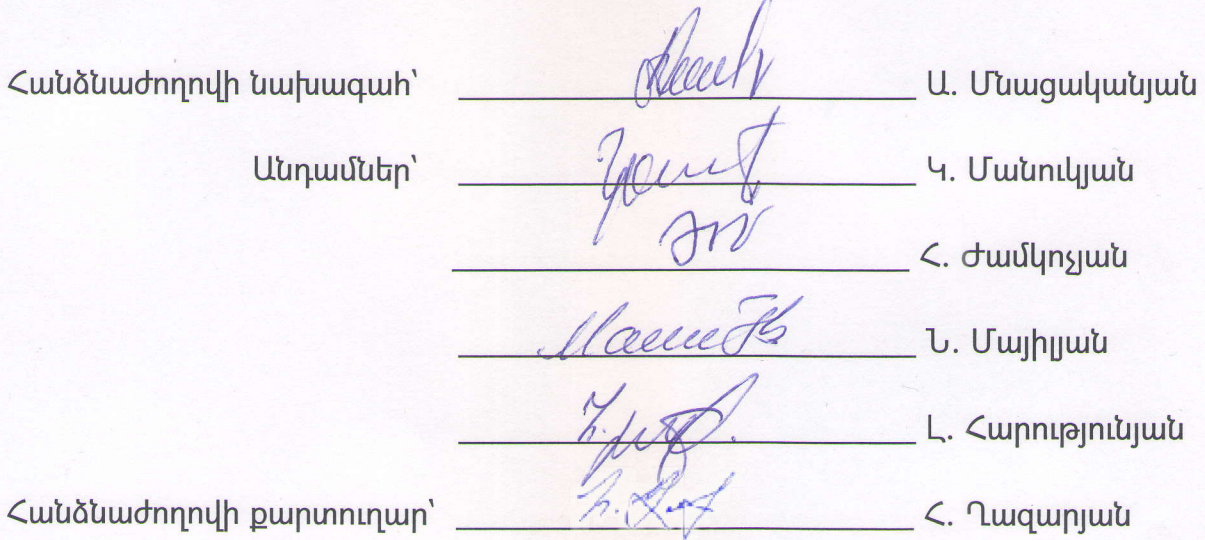 Հանձնաժողովի նախագահ՝ Ա. Մնացականյան
Անդամներ՝ Կ. Մանուկյան
Հ. Ժամկոչյան
Ն. Մայիլյան
Լ. Հարությունյան
Հանձնաժողովի քարտուղար՝ Հ. Ղազարյան